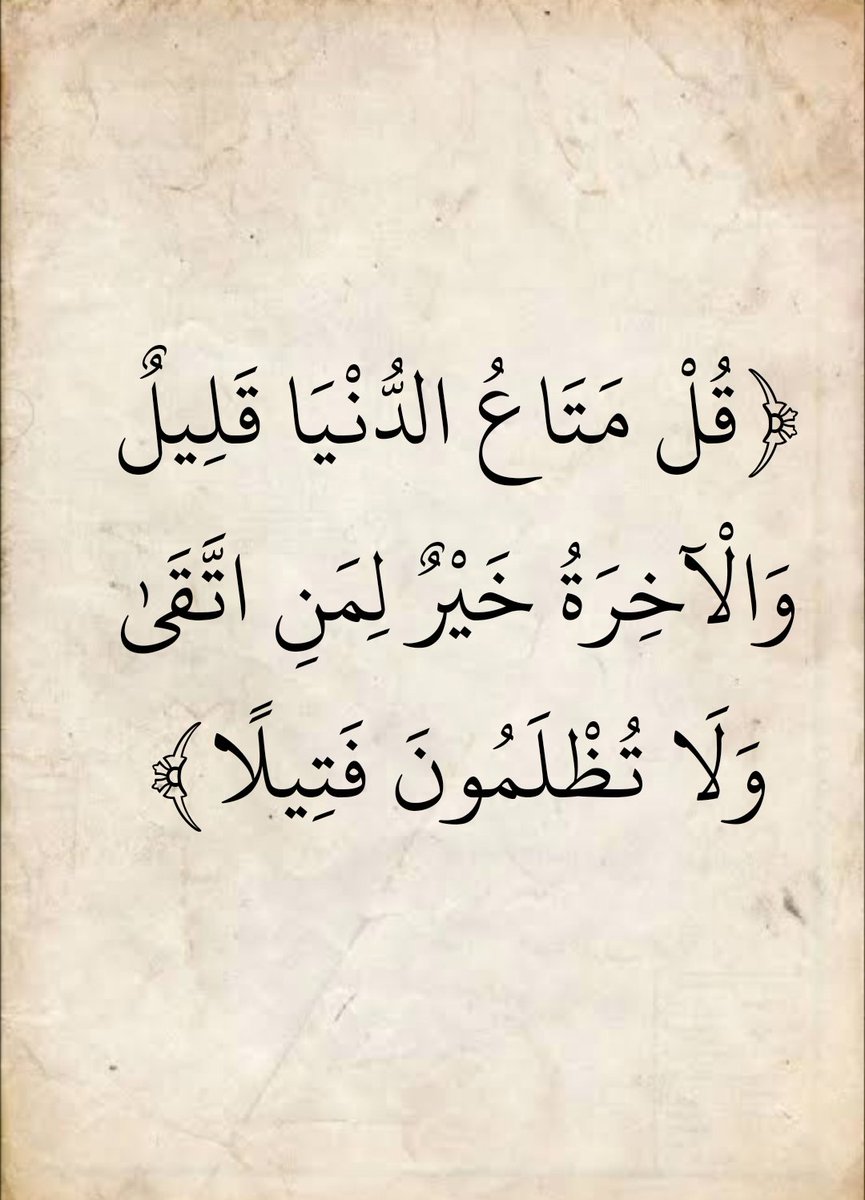 ﴿قُلْ مَتَاعُ الدُّنْيَا قَلِيلٌ
وَالْآخِرَةُ خَيْرٌ لِمَنِ اتَّقَىٰ
وَلَا تُظْلَمُونَ فَتِيلًا﴾